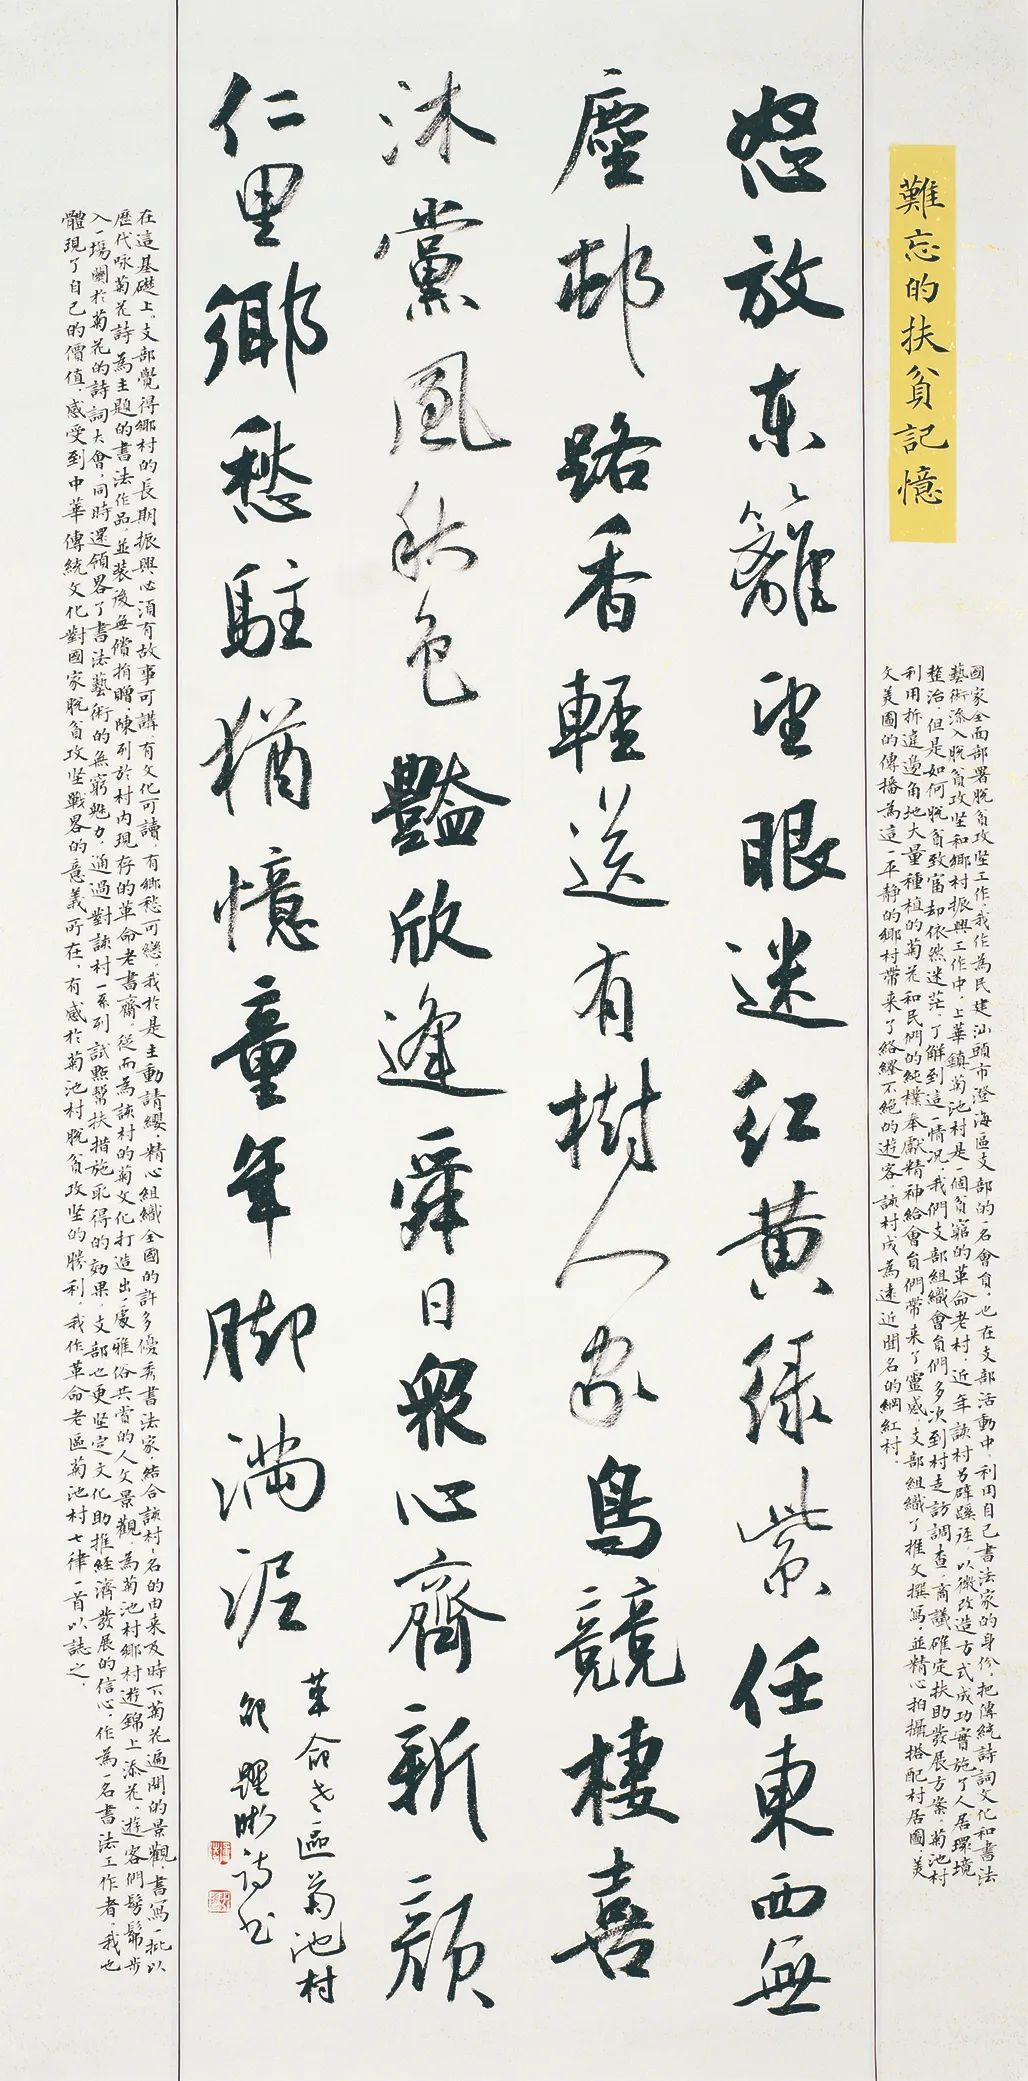 難忘的扶貧記憶
國家全面部署脫貧攻坚工作，我作為民建汕頭市澄海區支部的一名會員，也在支部活動中，利用自己書法家的身份，把傳統詩詞文化和書法
藝術添入脫貧攻坚和鄉村振興工作中，上華鎮菊池村是一個貧窮的革命老村，近年該村另辟蹊徑，以微改造方式成功實施了人居環境
整治，但是如何脫貧致富却依然迷茫，了解到這一情况，我們支部組織會員們多次到村走訪調查，商議確定扶助發展方案，菊池村
利用拆違邊角地大量種植的菊花和民們的純樸奉獻精神給會員們帶來了靈感，支部組織了推文撰寫，並精心拍攝搭配村居圖，美
文美圖的傳播為這一平靜的鄉村帶来了絡繹不絕的遊客，該村成為遠近聞名的網紅村．
怒放东籬望眼迷红黄绿紫任東西無
塵邨路香輕送有樹人家鳥競棲喜
沐黨風秋色豔欣逢舜日眾心齊新顏
仁里鄉愁駐猶憶童年脚满泥
革命老區菊池村
躍彬詩书
在這基礎上，支部覺得鄉村的長期振興必須有故事可講，有文化可讀，有鄉愁可戀，我於是主動請纓，精心組織全國的許多優秀書法家，結合該村名的由来及時下菊花遍開的景觀，書寫一批以
歷代咏菊花詩為主題的書法作品，並装後無償捐贈，陳列於村内現存的革命老書齋，從而為該村的菊文化打造出一處雅俗共賞的人文景觀，為菊池村鄉村遊錦上添花，遊客們髣髴步
入一場關於菊花的詩詞大會，同時還領略了書法藝術的無窮魅力，通過對該村一系列試點幫扶措施取得的効果，支部也更坚定文化助推經濟發展的信心，作為一名書法工作者，我也
體現了自己的價值，感受到中華傳統文化對國家脫貧攻坚戰略的意義所在，有感於菊池村脫貧攻坚的勝利，我作革命老區菊池村七律一首以誌之．